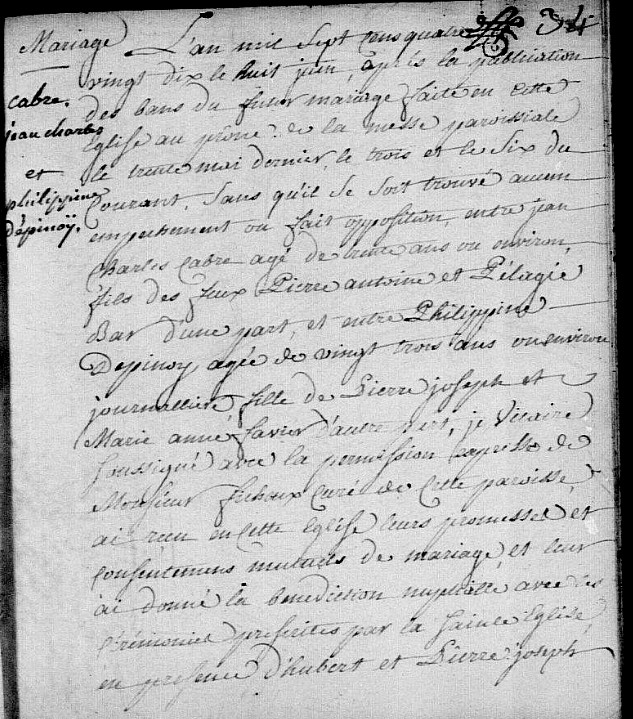 34
Mariage
cabre.
jean charles
et
philippine
Dépinoÿ.
L'an mil sept cens quatre
vingt dix le huit juin, après la publication
des bans du futur mariage faite en cette
Eglise au prône de la messe paroissiale
le trente mai dernier, le trois et le six du
Courant, sans qu'il se soit trouvé aucun
empechement ou fait opposition, entre jean
Charles Cabre agé de trente ans ou environ,
fils des feux Pierre antoine et Pélagie
Bar d'une part, et entre Philippine
Depinoy agée de vingt trois ans ou environ
journalliere fille de Pierre joseph et
Marie anne favier d'autre part, je Vicaire
soussigné avec la permission expresse de
Monsieur Curé de Cette paroisse,
ai reçu en Cette Eglise leurs promesses et
Consentemens mutuels de mariage, et leur
ai donné la benediction nuptiale avec les
Cérémonies prescrites par la Sainte Eglise,
en presence d'hubert et Pierre joseph